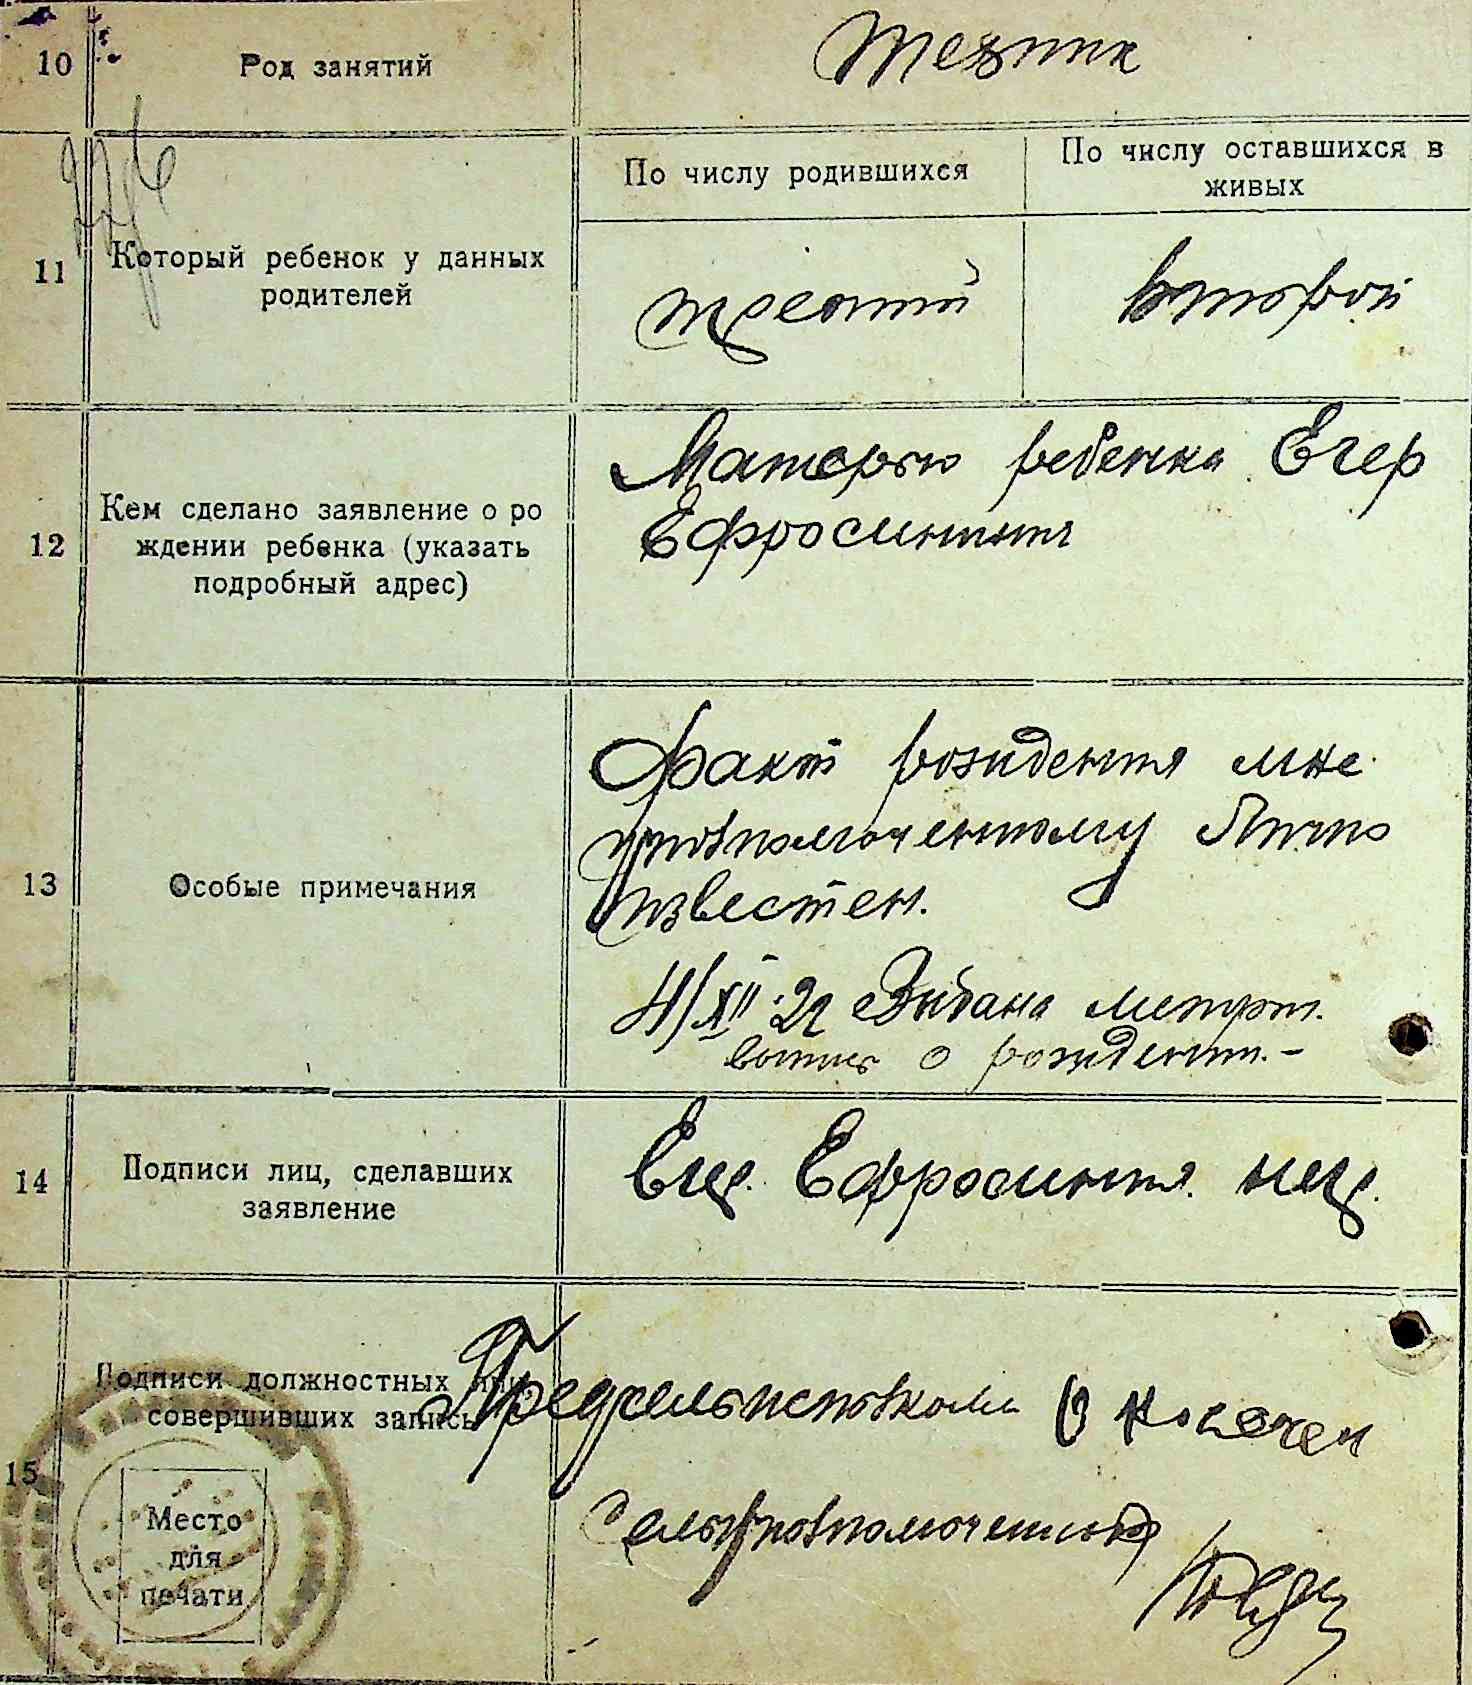 10 Род занятий
техник
По числу родившихся
По числу оставшихся в
живых
11 Который ребенок у данных
родителей
третий
второй
12 Кем сделано заявление о ро
ждении ребенка (указать
подробный адрес)
Матерью ребенка Егер
Ефросинния
13 Особые примечания
Факт рождения мне
уповполмоченному лично
известен.
4/XII-21 Выдана метрич.
выпись о рождении.-
14 Подписи лиц, сделавших
заявление
Ефросинния
15 Подписи должностных лиц,
совершивших запись
Место
для
печати
Председсельисповкома
Сельуповполмоченный